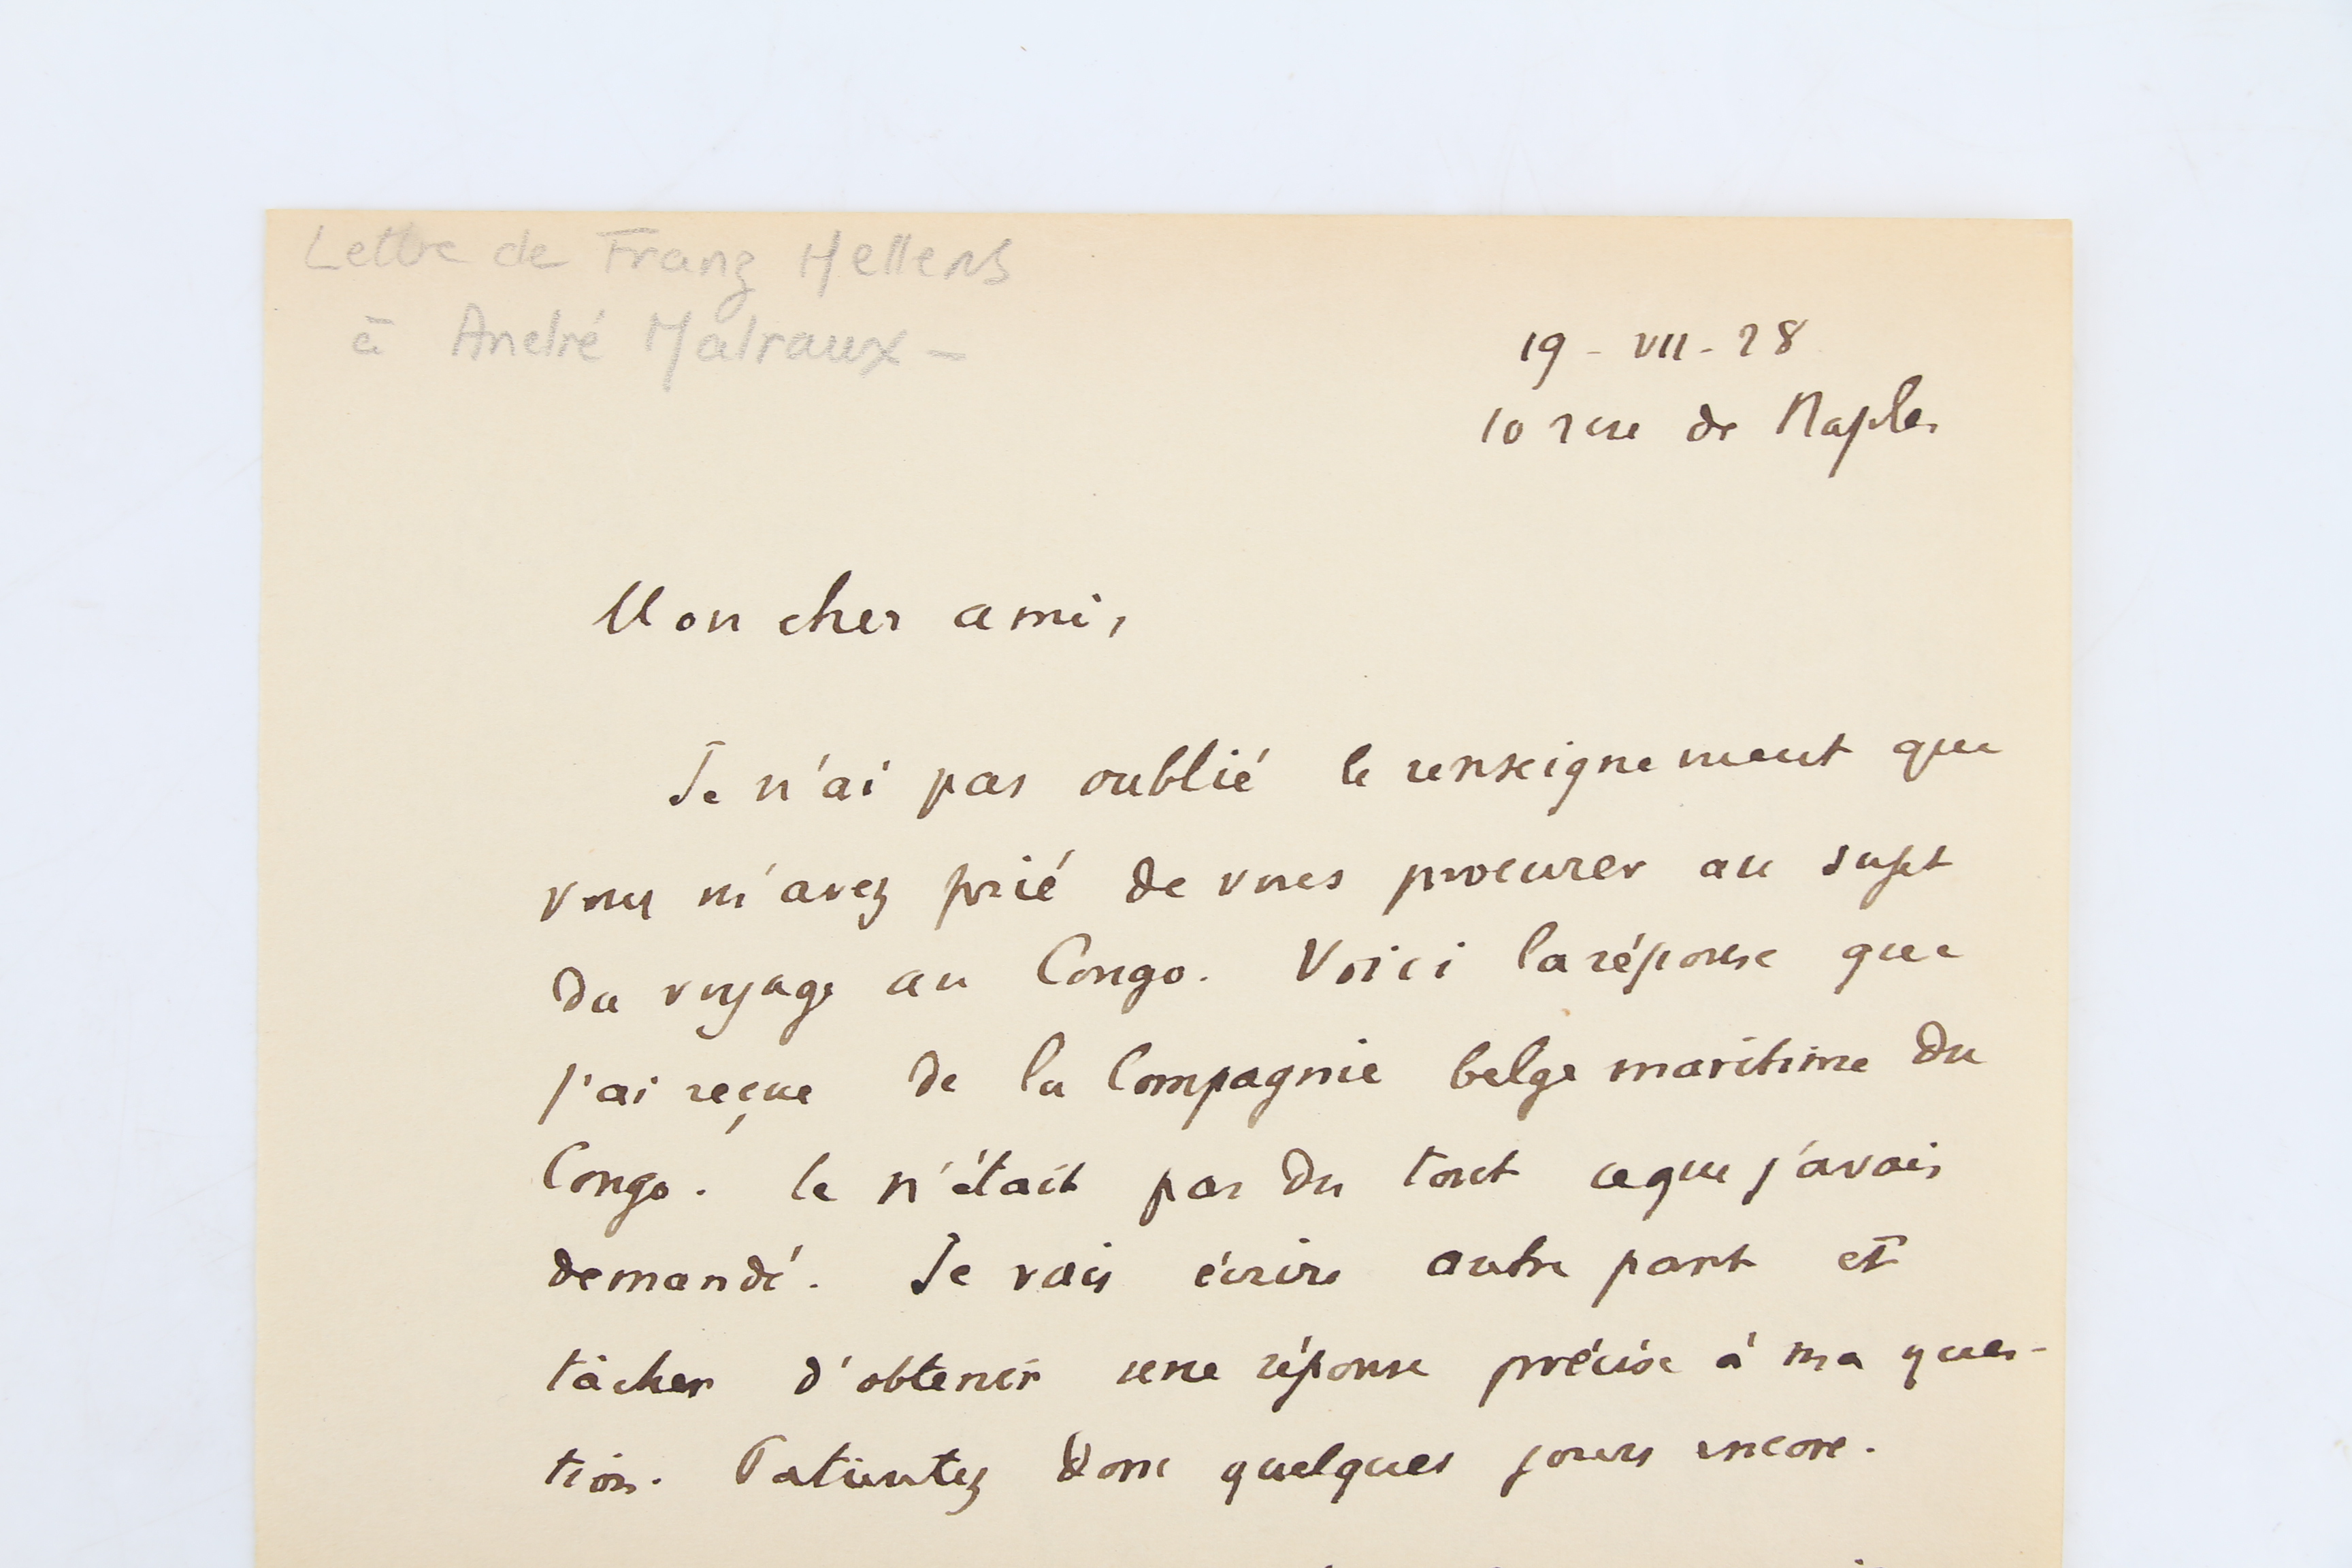 Lettre de Franz Hellens
à André Malraux -
19 - VII - 28
10 rue de Naples
Mon cher ami,
Je n'ai pas oublié le renseignement que
vous m'avez prié de vous procurer au sujet
du voyage au Congo. Voici la réponse que
j'ai reçue de la Compagnie belge maritime du
Congo. Ce n'était pas du tout ce que j'avais
demandé. Je vais écrire autre part et
tâcher d'obtenir une réponse précise à ma ques-
tion. Patientez donc quelques jours encore.